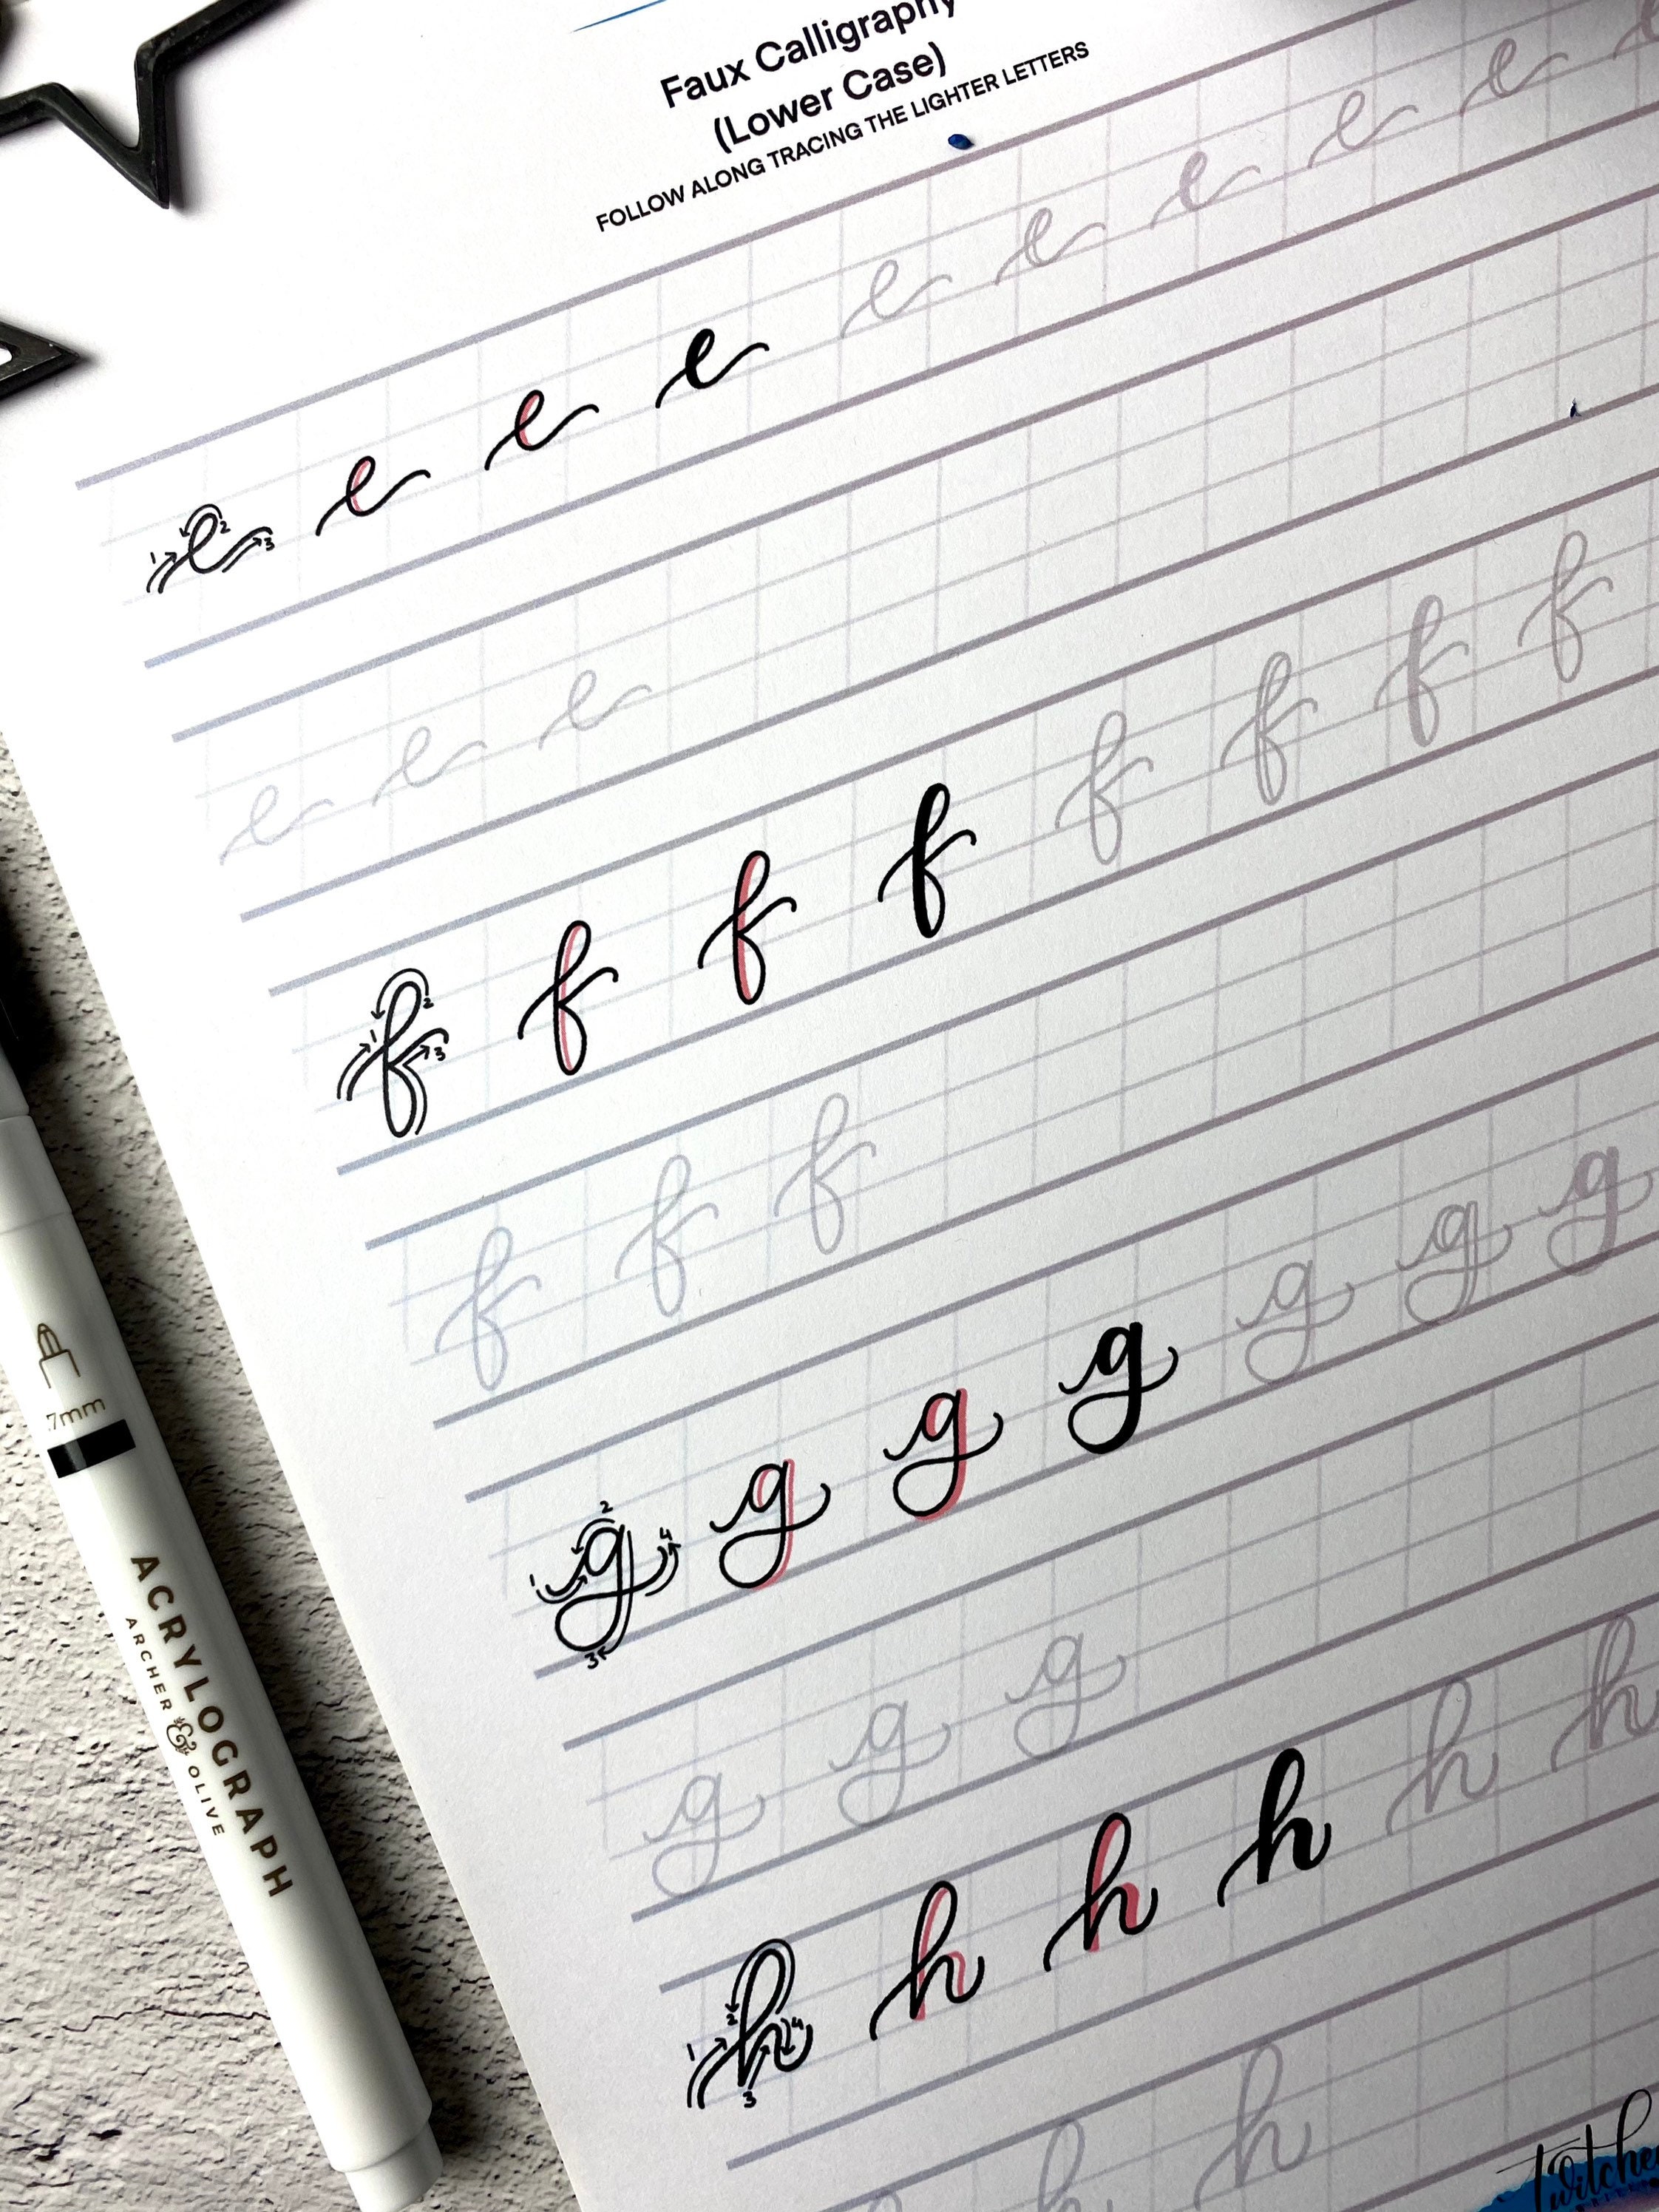 Faux Calligraphy
(Lower Case)
FOLLOW ALONG TRACING THE LIGHTER LETTERS
1 2 3
e e e e e e e e e
e e e
1 2 3
f f f f f f f f
f f f
1 2 3 4
g g g g g g g
g g g
1 2 3 4
h h h h h h
h h
7mm
ACRYLOGRAPH
ARCHER & OLIVE